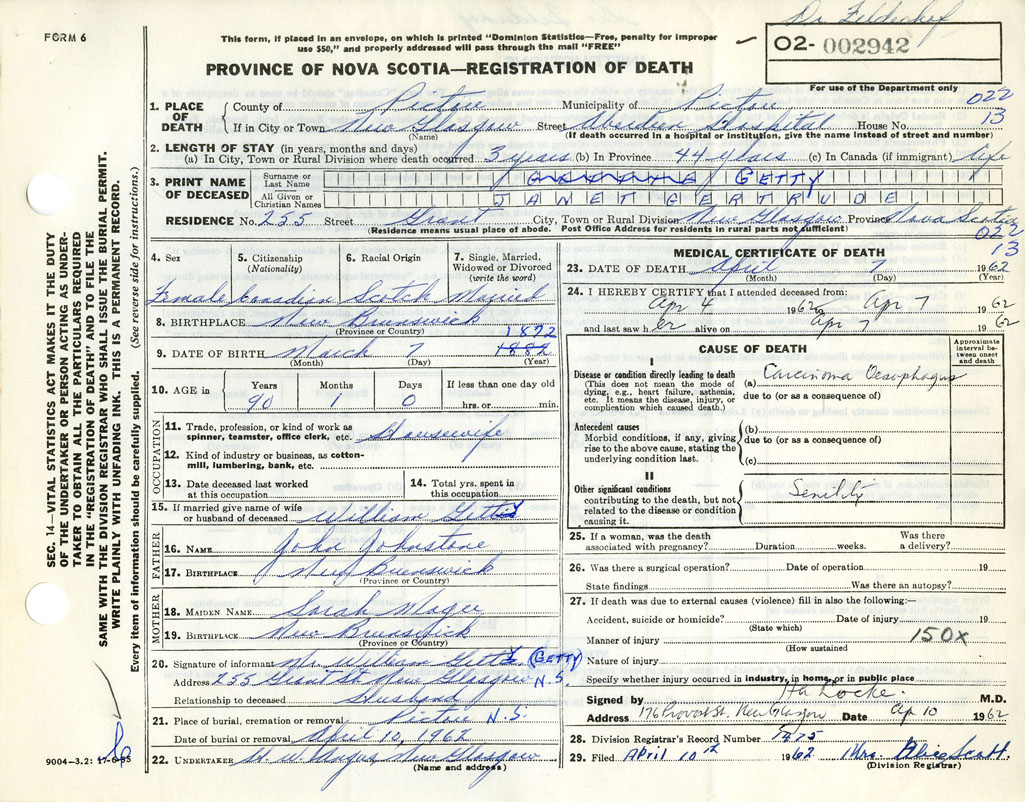 Dr Feldenhof
FORM 6
This form, if placed in an envelope, on which is printed "Dominion Statistics—Free, penalty for improper
use $50," and properly addressed will pass through the mail "FREE"
O2- 002942
PROVINCE OF NOVA SCOTIA—REGISTRATION OF DEATH
For use of the Department only
022
13
1. PLACE OF DEATH
County of Pictou Municipality of Pictou
If in City or Town New Glasgow Street Aberdeen Hospital House No.
(Name) (If death occurred in a hospital or institution, give the name instead of street and number)
2. LENGTH OF STAY (in years, months and days)
(a) In City, Town or Rural Division where death occurred 3 years (b) In Province 44 years (c) In Canada (if immigrant) life
3. PRINT NAME OF DECEASED
Surname or Last Name GETTY
All Given or Christian Names JANET GERTRUDE
RESIDENCE No. 255 Street Grant City, Town or Rural Division New Glasgow Province Nova Scotia
(Residence means usual place of abode. Post Office Address for residents in rural parts not sufficient)
022
13
4. Sex
5. Citizenship (Nationality)
6. Racial Origin
7. Single, Married, Widowed or Divorced (write the word)
Female Canadian Scotch Married
8. BIRTHPLACE New Brunswick
(Province or Country)
1872
9. DATE OF BIRTH March 7 1882
(Month) (Day) (Year)
10. AGE in Years Months Days If less than one day old
90 1 0 hrs. or min.
OCCUPATION
11. Trade, profession, or kind of work as spinner, teamster, office clerk, etc. Housewife
12. Kind of industry or business, as cotton-mill, lumbering, bank, etc.
13. Date deceased last worked at this occupation
14. Total yrs. spent in this occupation
15. If married give name of wife or husband of deceased William Getty
FATHER
16. NAME John Johnstone
17. BIRTHPLACE New Brunswick
(Province or Country)
MOTHER
18. MAIDEN NAME Sarah Magee
19. BIRTHPLACE New Brunswick
(Province or Country)
20. Signature of informant Mr William Getty (GETTY)
Address 255 Grant St New Glasgow N.S.
Relationship to deceased Husband
21. Place of burial, cremation or removal Pictou N.S.
Date of burial or removal April 10, 1962
22. UNDERTAKER New Glasgow
(Name and address)
MEDICAL CERTIFICATE OF DEATH
23. DATE OF DEATH April 7 1962
(Month) (Day) (Year)
24. I HEREBY CERTIFY that I attended deceased from:
Apr 4 1962 to Apr 7 1962
and last saw her alive on Apr 7 1962
CAUSE OF DEATH
Approximate interval between onset and death
I
Disease or condition directly leading to death
(This does not mean the mode of dying, e.g., heart failure, asthenia, etc. It means the disease, injury, or complication which caused death.)
(a) Carcinoma Oesophagus
due to (or as a consequence of)
Antecedent causes
Morbid conditions, if any, giving rise to the above cause, stating the underlying condition last.
(b)
due to (or as a consequence of)
(c)
II
Other significant conditions
contributing to the death, but not related to the disease or condition causing it.
Senility
25. If a woman, was the death associated with pregnancy? Duration weeks. Was there a delivery?
26. Was there a surgical operation? Date of operation 19
State findings Was there an autopsy?
27. If death was due to external causes (violence) fill in also the following:—
Accident, suicide or homicide? Date of injury 19
(State which)
Manner of injury 150X
(How sustained)
Nature of injury
Specify whether injury occurred in industry, in home, or in public place
Signed by HA Locke. M.D.
Address 176 Provost St, New Glasgow Date Ap 10 1962
28. Division Registrar's Record Number 1475
29. Filed April 10th 1962 Mrs. Alice Scott
(Division Registrar)
SEC. 14—VITAL STATISTICS ACT MAKES IT THE DUTY
OF THE UNDERTAKER OR PERSON ACTING AS UNDER-
TAKER TO OBTAIN ALL THE PARTICULARS REQUIRED
IN THE "REGISTRATION OF DEATH" AND TO FILE THE
SAME WITH THE DIVISION REGISTRAR WHO SHALL ISSUE THE BURIAL PERMIT.
WRITE PLAINLY WITH UNFADING INK. THIS IS A PERMANENT RECORD.
Every item of information should be carefully supplied. (See reverse side for instructions.)
9004—3.2: 17-6-55